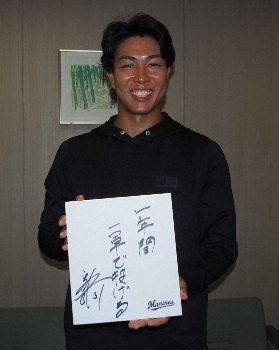 一年間
一軍で投げきる
Marines